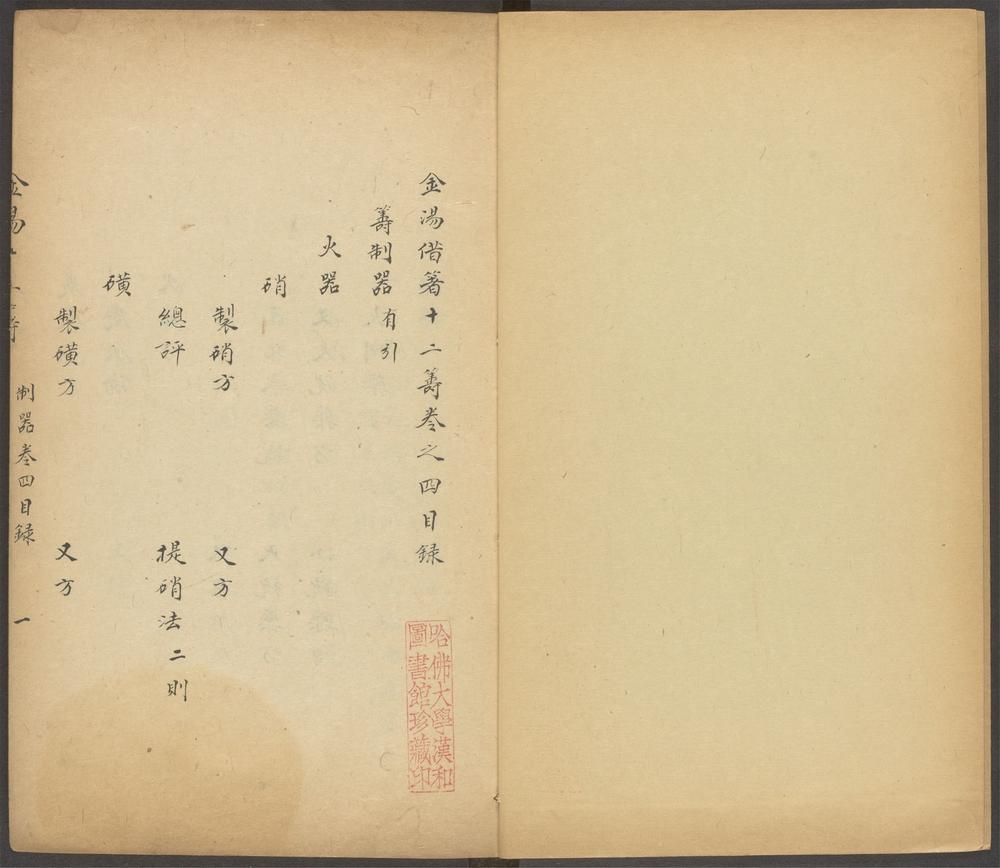 金湯借箸十二籌卷之四目録
籌制器有引
火器
硝
製硝方 又方
總評 提硝法二則
磺
製磺方 又方
制器卷四目録 一
哈佛大學漢和
圖書館珍藏印